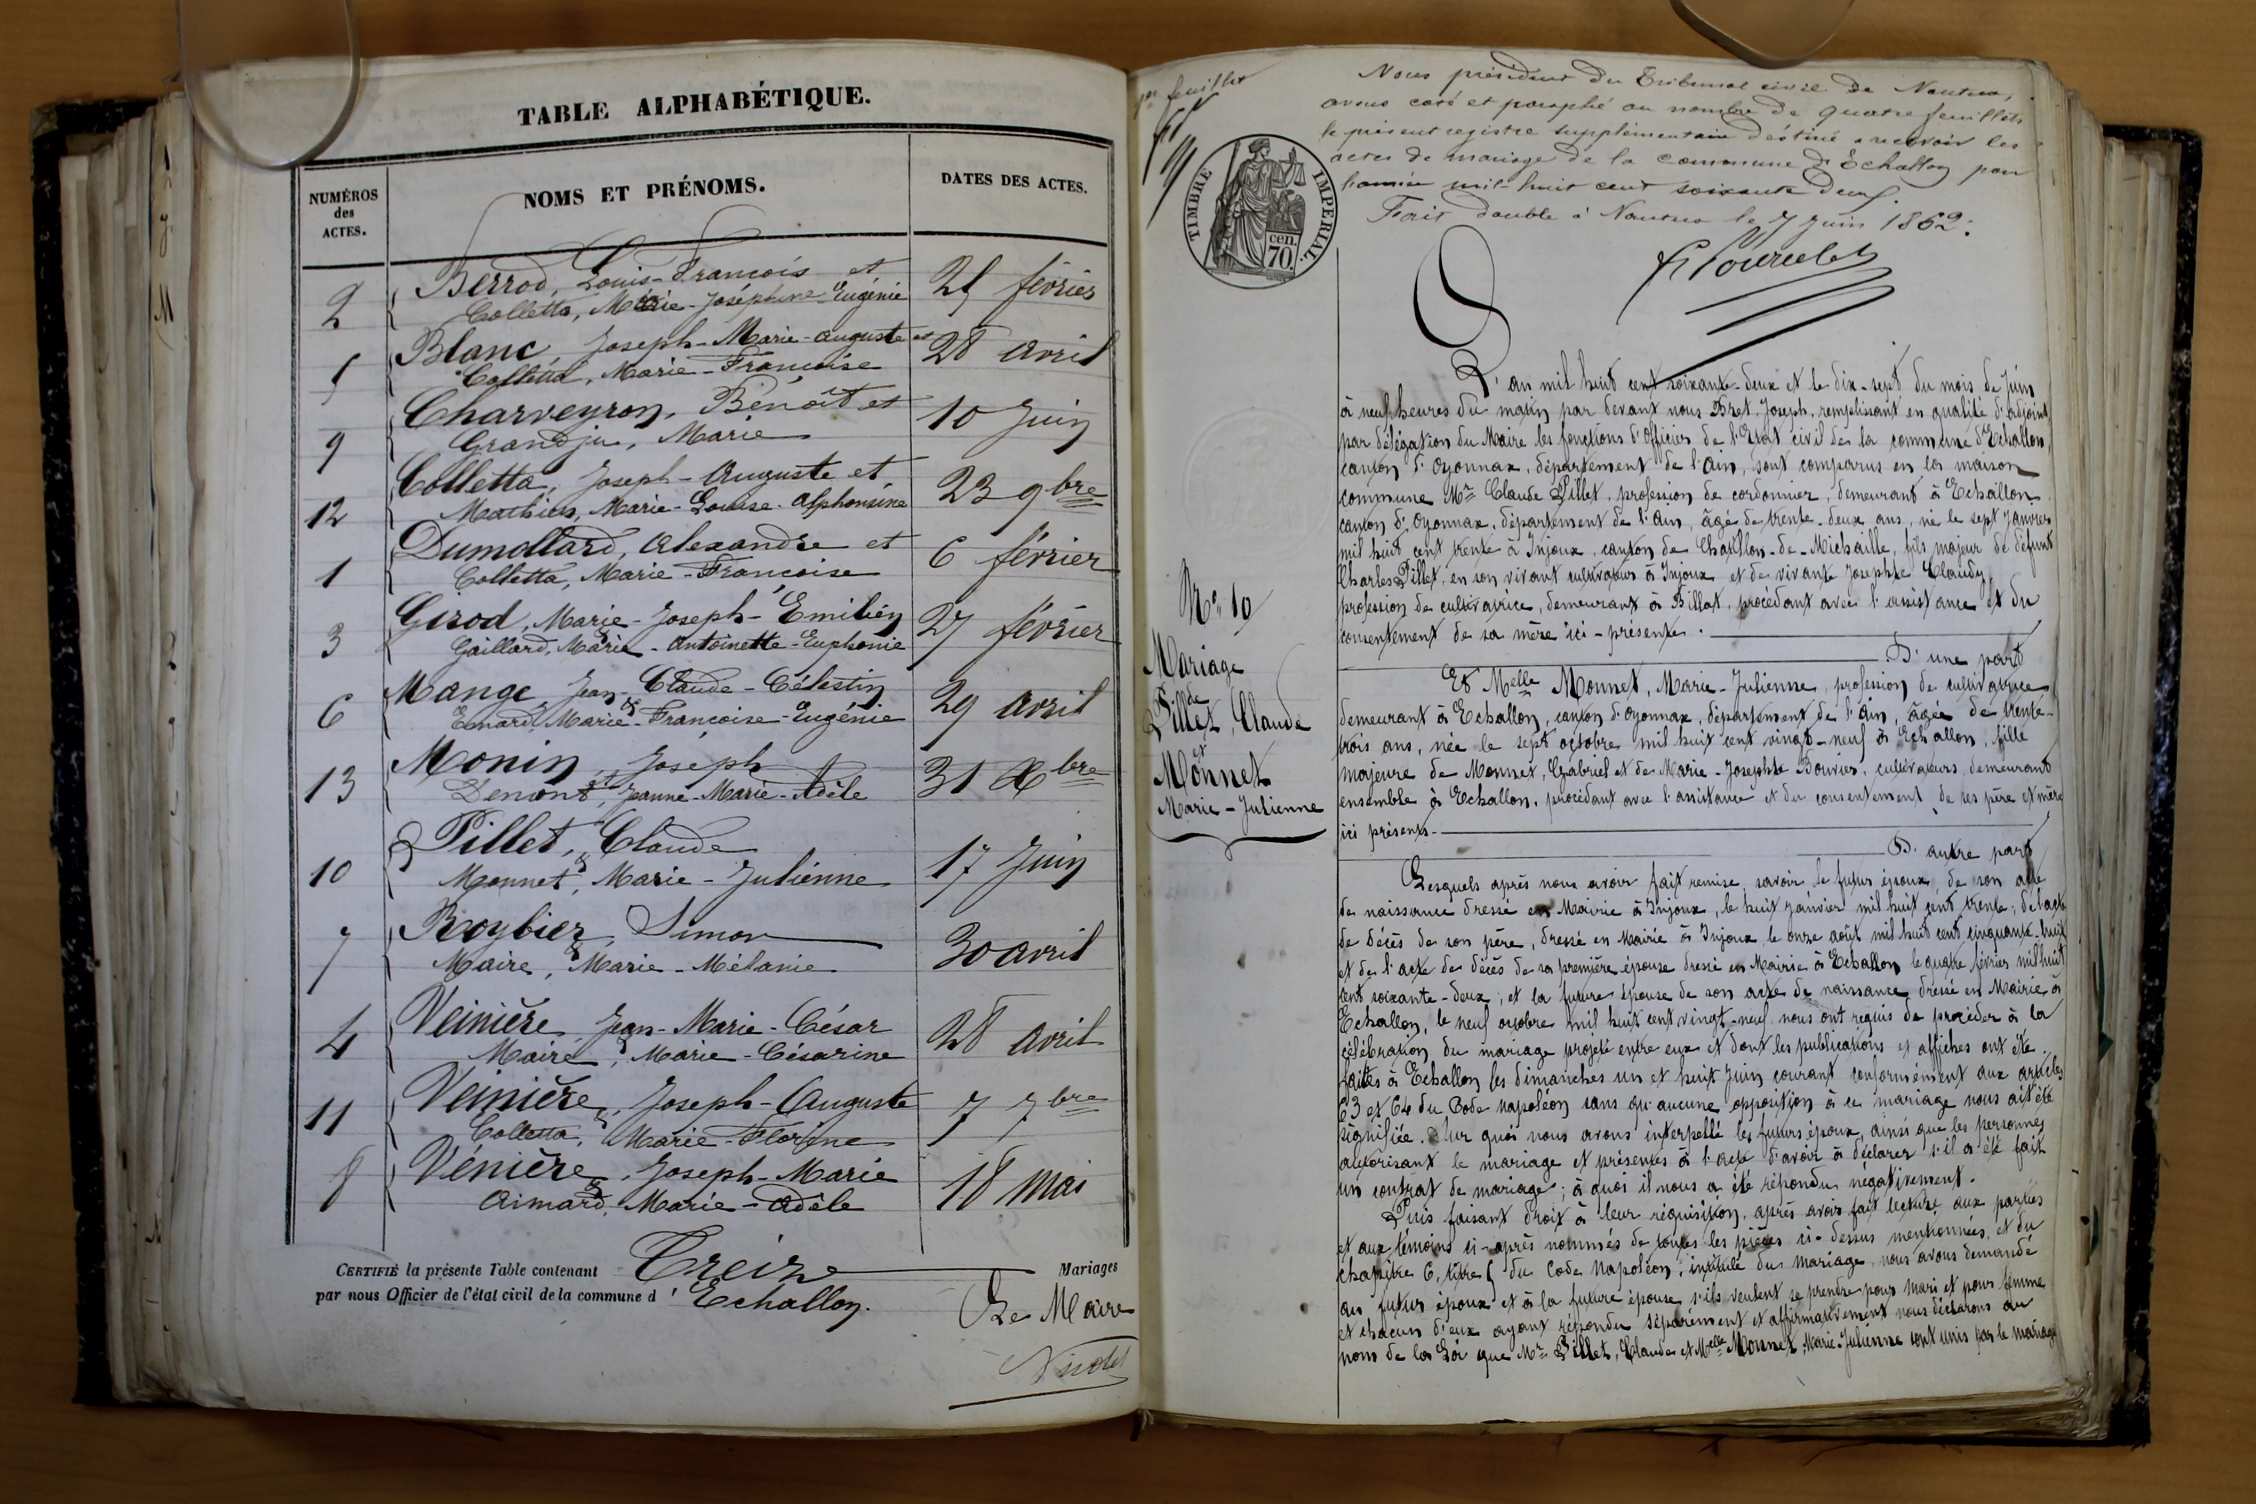 TABLE ALPHABÉTIQUE.
NUMÉROS
des
ACTES.
NOMS ET PRÉNOMS.
DATES DES ACTES.
2 Berrod, Louis-François et 25 février
Colletta, Marie-Joséphine-Eugénie
5 Blanc Joseph-Marie-Auguste et 28 avril
Colletta, Marie-Françoise
9 Charveyron, Bénoît et 10 Juin
Grandju, Marie
12 Colletta, Joseph-Auguste et 23 9bre
Mathieu, Marie-Louise-Alphonsine
1 Dumollard, Alexandre et 6 février
Colletta, Marie-Françoise
3 Girod, Marie-Joseph-Emilien 27 février
& Gaillard, Marie-Antoinette-Euphonie
6 Mange Jean-Claude-Célestin 29 avril
& Emard, Marie-Françoise-Eugénie
13 Monin, Joseph 31 Xbre
et Démont, Jeanne-Marie-Adèle
10 Pillet, Claude 17 Juin
& Monnet, Marie-Julienne
7 Roybier, Simon 30 avril
& Maire, Marie-Mélanie
4 Veinière, Jean-Marie-César 28 avril
& Maire, Marie-Césarine
11 Veinière, Joseph-Auguste 7 7bre
& Colletta, Marie-Florine
8 Vénière, Joseph-Marie 18 mai
& Aimard, Marie-Adèle
CERTIFIÉ la présente Table contenant Treize Mariages
par nous Officier de l'état civil de la commune d'Echallon.
Le Maire
1er feuillet
TIMBRE IMPÉRIAL.
cen.
70.
Nous président du Tribunal civil de Nantua,
avons coté et paraphé au nombre de quatre feuillets
le présent registre supplémentaire destiné a recevoir les
actes de mariage de la commune d'Echallon pour
l'année mil-huit cent soixante deux.
Fait double à Nantua le 7 Juin 1862.
N° 10
Mariage
de
Pillet, Claude
et
Monnet
Marie-Julienne
L'an mil huit cent soixante-deux et le dix-sept du mois de Juin
à neuf heures du matin par devant nous Bret, Joseph, remplissant en qualité d'adjoint,
par délégation du Maire les fonctions d'Officier de l'Etat civil de la commune d'Echallon,
canton d'Oyonnax, département de l'Ain, sont comparus en la maison
commune Mr Claude Pillet, profession de cordonnier, demeurant à Echallon
canton d'Oyonnax, département de l'Ain, âgé de trente-deux ans, né le sept Janvier
mil huit cent trente à Injoux, canton de Chatillon-de-Michaille, fils majeur de défunt
Charles Pillet, en son vivant cultivateur à Injoux et de vivante Josephte Claudy,
profession de cultivatrice, demeurant à Billat, procédant avec l'assistance et du
consentement de sa mère ici-présente.
D'une part
Et Melle Monnet, Marie-Julienne, profession de cultivatrice
demeurant à Echallon, canton d'Oyonnax, département de l'Ain, âgée de trente-
trois ans, née le sept octobre mil huit cent vingt-neuf à Echallon, fille
majeure de Monnet, Gabriel et de Marie-Josephte Bouvier, cultivateurs, demeurant
ensemble à Echallon, procédant avec l'assistance et du consentement de ses père et mère
ici présents.
D'autre part
Lesquels après nous avoir fait remise, savoir le futur époux, de son acte
de naissance dressé en Mairie à Injoux, le huit Janvier mil huit cent trente; de l'acte
de décès de son père, dressé en Mairie à Injoux le onze août mil huit cent cinquante-huit
et de l'acte de décès de sa première épouse dressé en Mairie à Echallon le quatre février mil huit
cent soixante-deux; et la future épouse de son acte de naissance dressé en Mairie à
Echallon, le neuf octobre mil huit cent vingt-neuf nous ont requis de procéder à la
célébration du mariage projeté entre eux et dont les publications et affiches ont été
faites à Echallon les dimanches un et huit Juin courant conformément aux articles
63 et 64 du Code Napoléon sans qu'aucune opposition à ce mariage nous ait été
signifiée. Sur quoi nous avons interpellé les futurs époux, ainsi que les personnes
autorisant le mariage et présentes à l'acte d'avoir à déclarer s'il a été fait
un contrat de mariage; à quoi il nous a été répondu négativement.
Puis faisant droit à leur réquisition, après avoir fait lecture aux parties
et aux témoins ci-après nommés de toutes les pièces ci-dessus mentionnées, et du
chapitre 6, titre 5 du Code Napoléon, intitulé du mariage, nous avons demandé
au futur époux et à la future épouse s'ils veulent se prendre pour mari et pour femme
et chacun d'eux ayant répondu séparément et affirmativement nous déclarons au
nom de la Loi que Mr Pillet, Claude et Melle Monnet Marie-Julienne sont unis par le mariage